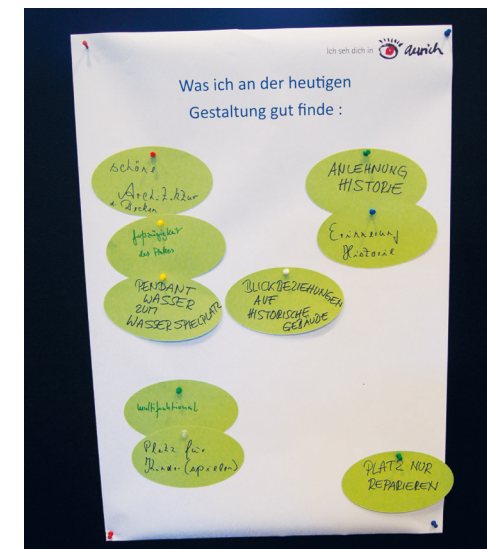 Ich seh dich in aurich
Was ich an der heutigen
Gestaltung gut finde :
schöne
Architektur
d. Becken
des Platzes
PENDANT
WASSER
ZUM
WASSERSPIELPLATZ
BLICKBEZIEHUNGEN
AUF
HISTORISCHE
GEBÄUDE
ANLEHNUNG
HISTORIE
Erinnerung
Historie
multifunktional
Platz für
Kinder (spielen)
PLATZ NUR
REPARIEREN